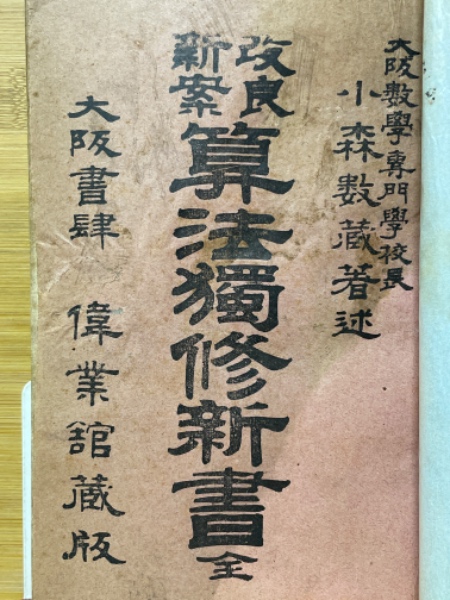 大阪數學專門學校長
小森數藏著述
改良
新案
算法獨修新書全
大阪書肆 偉業舘藏版